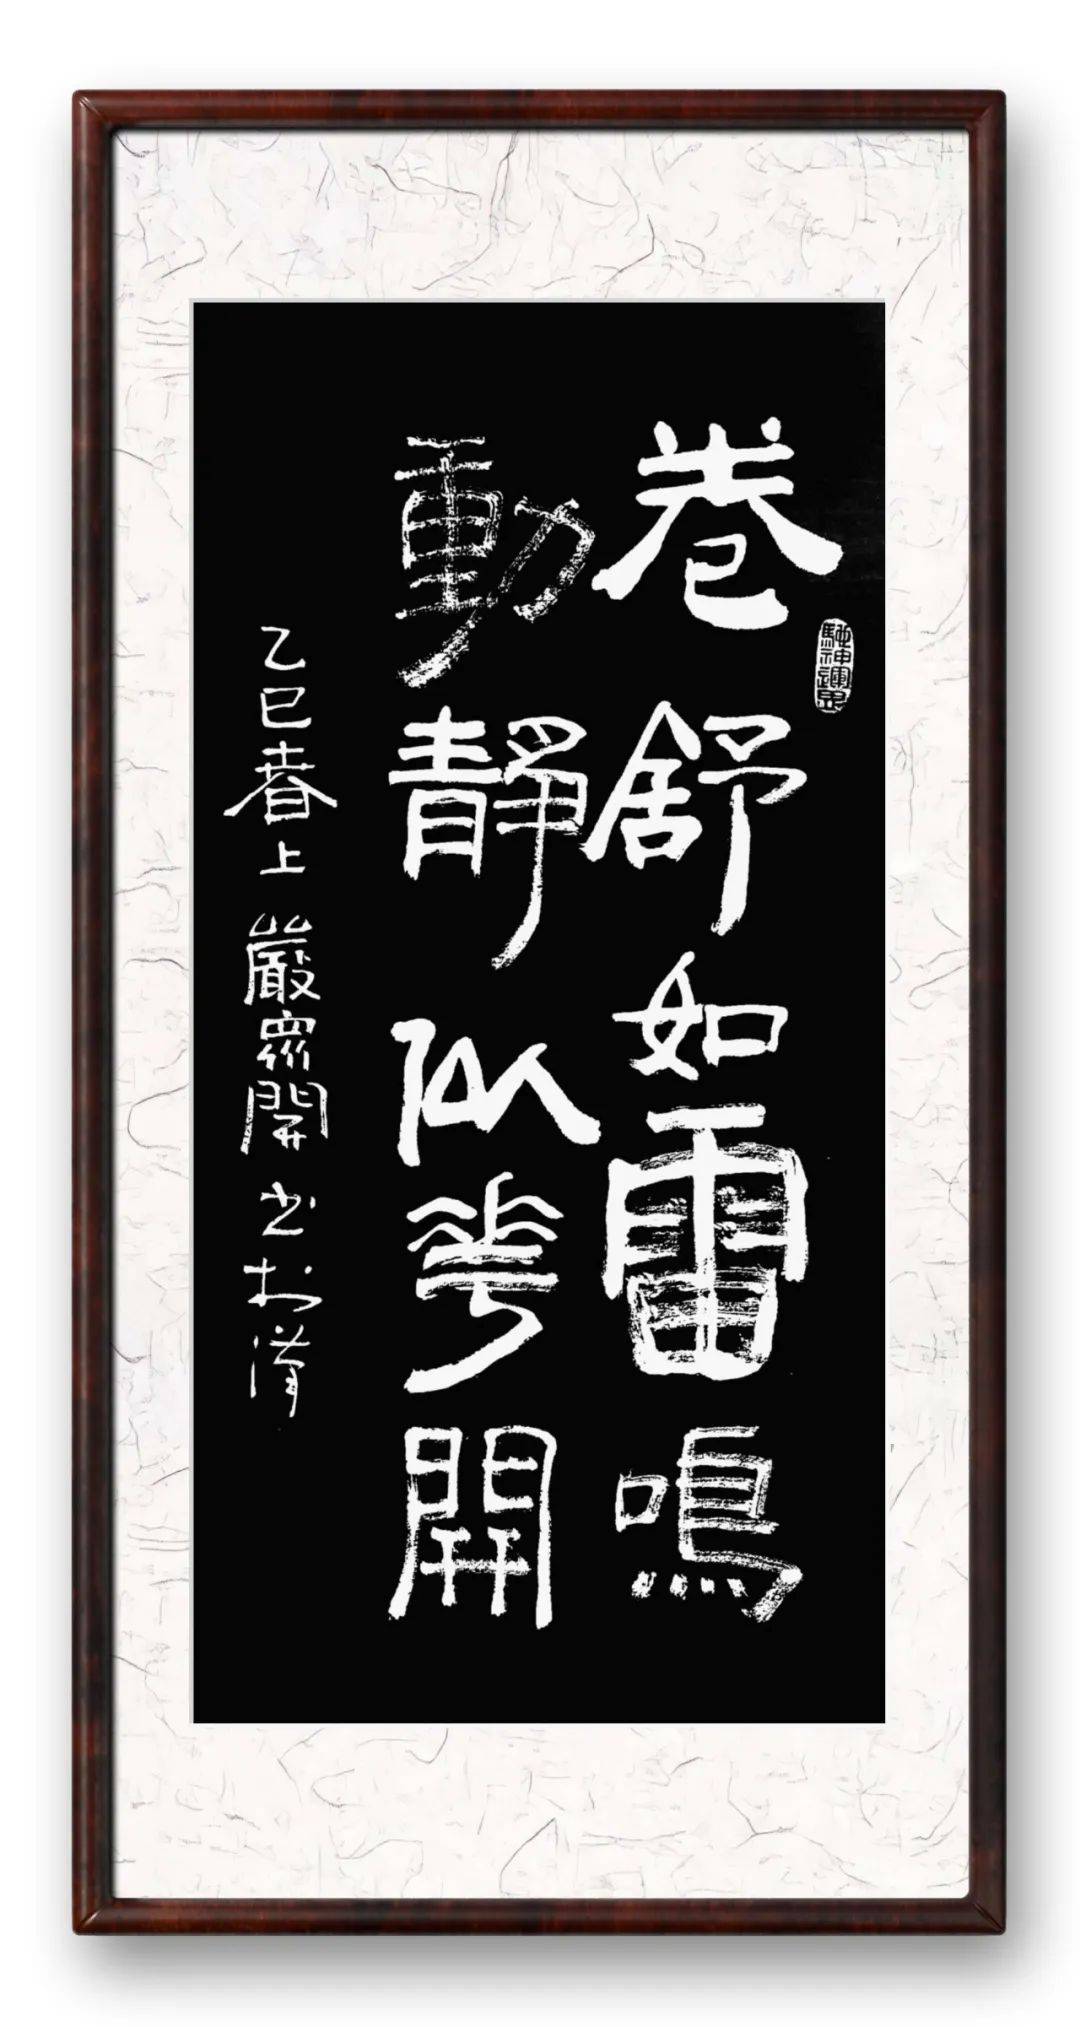 卷舒如雷鳴
動靜似華開
乙巳春上 嚴眾開 书於漢